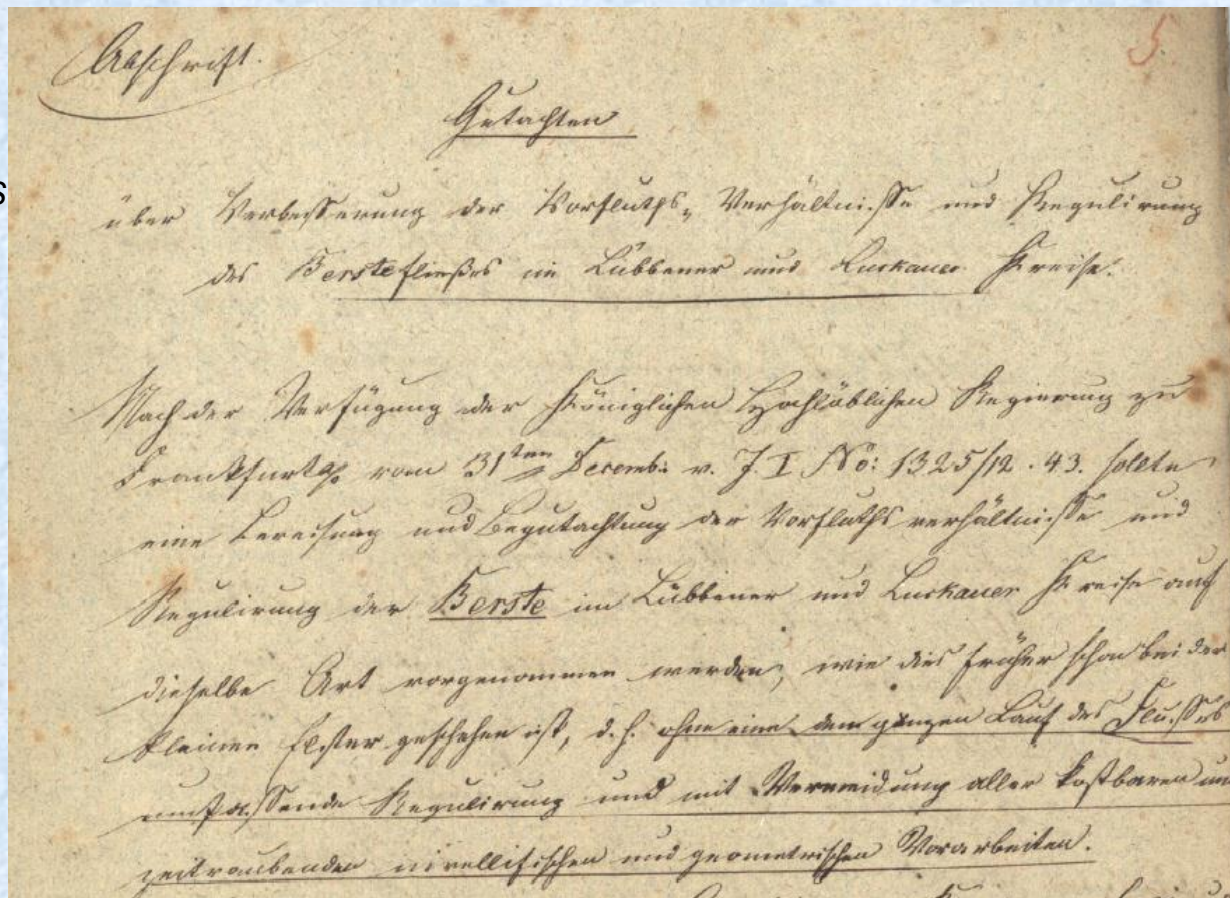 Abschrift.
5.
Gutachten
über Verbesserung der Vorfluths- Verhältnisse und Regulirung
des Berstefließes im Lübbener und Luckauer Kreise.
Nach der Verfügung der Königlichen Hochlöblichen Regierung zu
Frankfurt vom 31ten Decemb: v. J. I No: 1325/12. 43. sollte
eine Bereisung und Begutachtung der Vorfluthsverhältnisse und
Regulirung der Berste im Lübbener und Luckauer Kreise auf
dieselbe Art vorgenommen werden, wie dies früher schon bei der
kleinen Elster geschehen ist, d. h. ohne eine den ganzen Lauf des Flusses
umfassende Regulirung und mit Vermeidung aller kostbaren un
zeitraubenden nivellitischen und geometrischen Vorarbeiten.